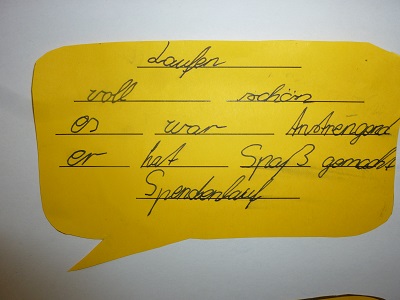 Laufen
voll schön
es war Anstrengend
er hat Spaß gemacht
Spendenlauf